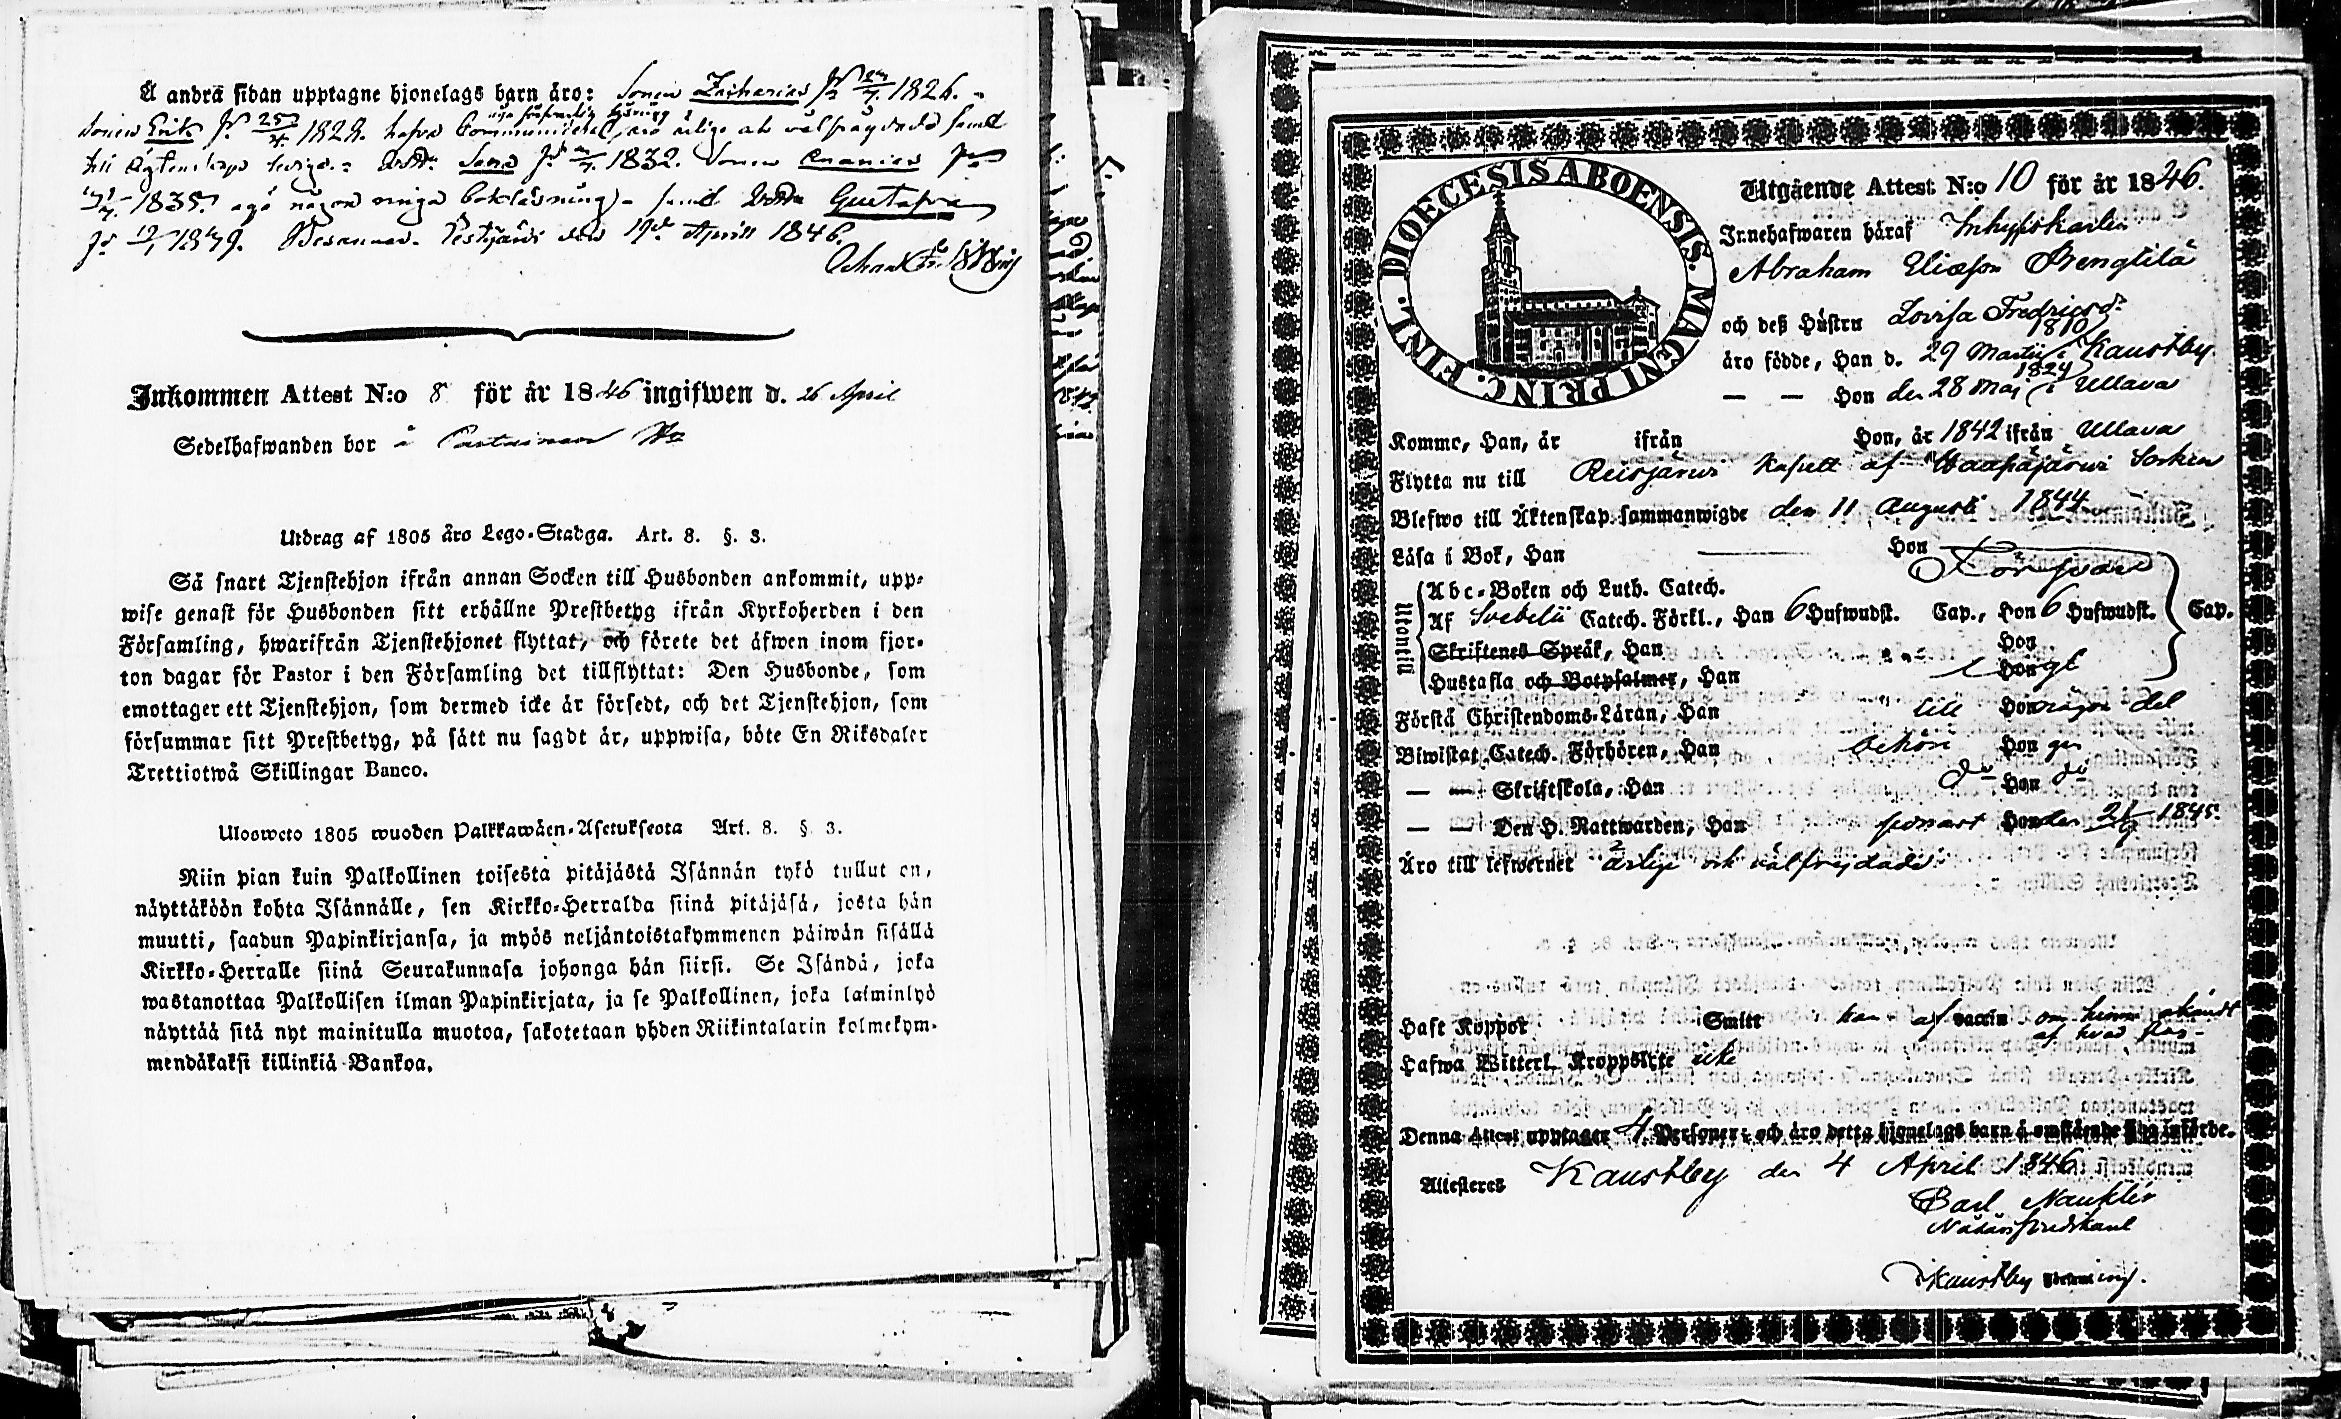 Å andra sidan upptagne hjonelags barn äro: Sonen Zacharias 1826.
Sonen Erik 1828. hafva
1832. Sonen Ananias
1835. äga någon ringa bokläsning samt Gustafva
19 Pestijärvi den 19 April 1846.
Johan
Inkommen Attest N:o 8 för år 1846 ingifwen d. 26 April
Sedelhafwanden bor å
Utdrag af 1805 års Lego-Stadga. Art. 8. §. 3.
Så snart Tjenstehjon ifrån annan Socken till Husbonden ankommit, upp-
wise genast för Husbonden sitt erhållne Prestbetyg ifrån Kyrkoherden i den
Församling, hwarifrån Tjenstehjonet flyttat, och förete det äfwen inom fjor-
ton dagar för Pastor i den Församling det tillflyttat: Den Husbonde, som
emottager ett Tjenstehjon, som dermed icke är försedt, och det Tjenstehjon, som
försummar sitt Prestbetyg, på sätt nu sagdt är, uppwisa, böte En Riksdaler
Trettiotwå Skillingar Banco.
Ulosweto 1805 wuoden Palkkawäen-Asetuksesta Art. 8. § 3.
Niin pian kuin Palkollinen toisesta pitäjästä Isännän tykö tullut on,
näyttäköön kohta Isännälle, sen Kirkko-Herralda siinä pitäjäsä, josta hän
muutti, saadun Papinkirjansa, ja myös neljäntoistakymmenen päiwän sisällä
Kirkko-Herralle siinä Seurakunnasa johonga hän siirsi. Se Isändä, joka
wastanottaa Palkollisen ilman Papinkirjata, ja se Palkollinen, joka laiminlyö
näyttää sitä nyt mainitulla muotoa, sakotetaan yhden Riikintalarin kolmekym-
mendäkaksi killinkiä Bankoa.
DIOECESIS ABOENSIS. MAGNI PRINC. FINL.
Utgående Attest N:o 10 för år 1846.
Innehafwaren häraf Inhyseskarlen
Abraham Eliæson Pengtilä
och deß Hustru Lovisa Fredricsd:r
äro födde, Han d. 29 Martii 1810 i Kaustby
— — Hon den 28 Maj 1824 i Ullava
Komne, Han, år ifrån Hon, år 1842 ifrån Ullava
Flytta nu till Reisjärwi Kapell af Haapajärwi Socken
Blefwo till Äktenskap sammanwigde den 11 Augusti 1844
Läsa i Bok, Han Hon
Utantill
Abc-Boken och Luth. Catech. Försvarl
Af Svebelii Catech. Förkl., Han 6 Hufwudst. Cap., Hon 6 Hufwudst. Cap.
Skriftenes Språk, Han Hon
Hustafla och Botpsalmer, Han Hon
Förstå Christendoms-Läran, Han till Hon någon del
Biwistat Catech. Förhören, Han Hon
— — Skriftskola, Han d:o Hon d:o
— — Den H. Nattwarden, Han senast Hon den 1845.
Äro till lefwernet ärlige och välfrejdade
Haft Koppor Smitt han af vaccin om henne okändt
af hvad slag
Hafwa Witterl. Kroppslyte icke
Denna Attest upptager 4 Personer: och äro detta hjonelags barn å omstående sida införde.
Attesteras Kaustby den 4 April 1846
Carl
Nådårspredikant
i Kaustby Församling.